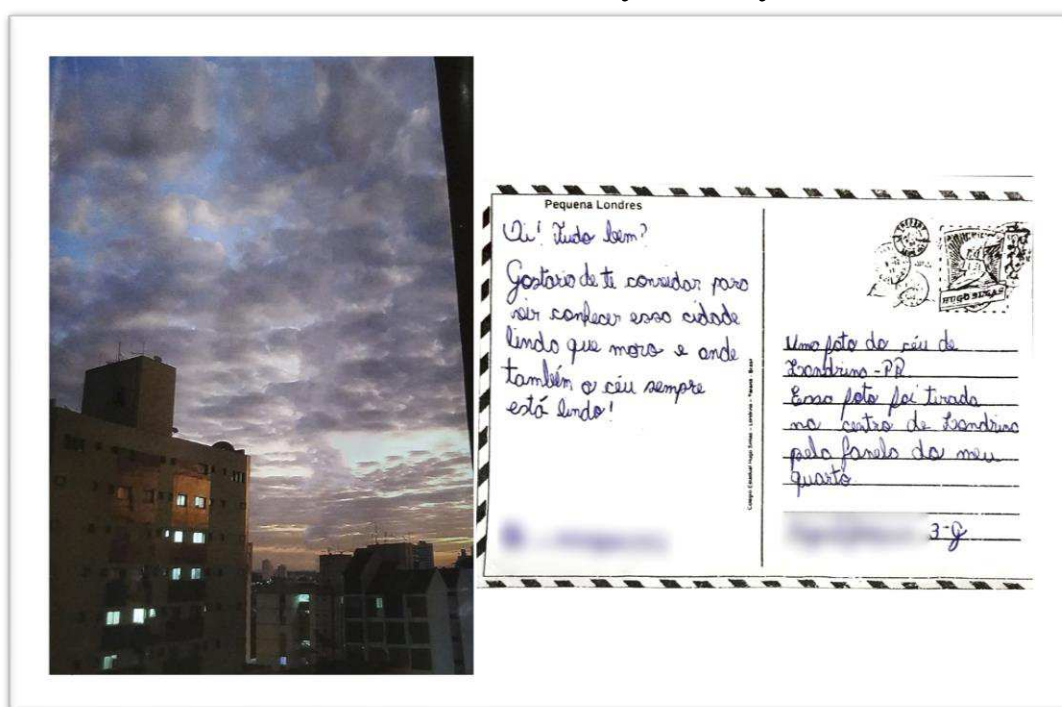 Pequena Londres
Oi! Tudo bem?
Gostaria de te convidar para
vir conhecer essa cidade
linda que moro e onde
também o céu sempre
está lindo!
Colégio Estadual Hugo Simas – Londrina – Paraná - Brasil
HUGO SIMAS
Uma foto do céu de
Londrina-PR.
Essa foto foi tirada
no centro de Londrina
pela janela do meu
quarto
3-G